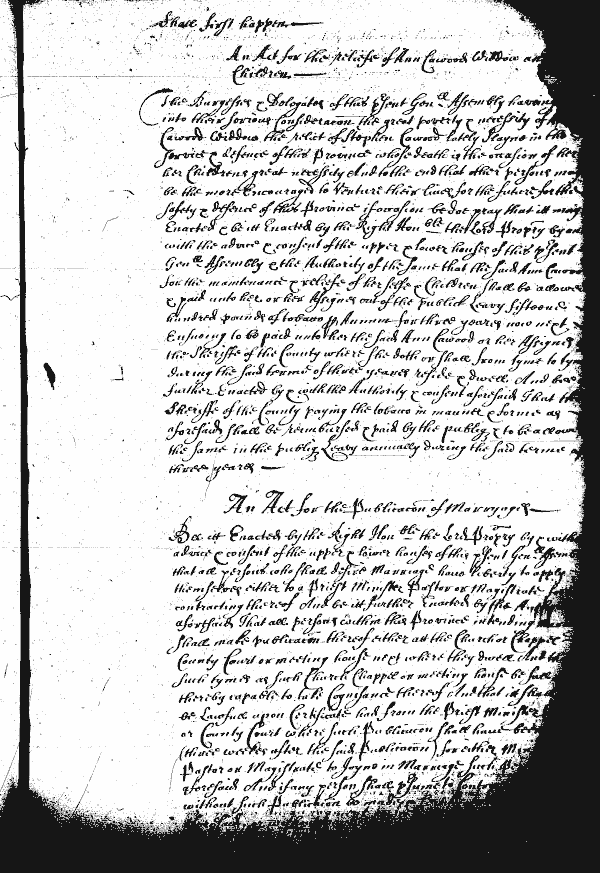 Shall first happen
An Act for the reliefe of Ann Cawood Widdow an
Children
The Burgesses & Delegates of this psent Genll Assembly haveing
into their serious Consideracon the great poverty & necessity of
Cawood Widdow the relict of Stephen Cawood lately slayne in the
service & defence of this Province whose death is the occasion of her
her Childrens great necessity And to the end that other persons may
be the more Encouraged to Venture their lives for the future for the
safety & defence of this Province if occasion be doe pray that itt may
Enacted & be itt Enacted by the Right Honble the Lord Propry by an
with the advice & consent of the upper & lower houses of this psent
Genll Assembly & the Authority of the same that the said Ann Cawood
for the maintenance & reliefe of herselfe & Children shall be allowed
& paid unto her or her Assignes out of the publick Leavy fifteene
hundred pounds of tobaco p Annum for three yeares now next
Ensueing to be paid unto her the said Ann Cawood or her Assignes
the Sheriffe of the County where she doth or shall from tyme to tym
during the said terme of three yeares reside & dwell And bee
further Enacted by & with the Authority & consent aforesaid That the
Sheriffe of the County paying the tobaco in manner & forme as
aforesaid shall be reimbursed & paid by the publiq & to be allowed
the same in the publiq Leavy annually during the said terme
three yeares
An Act for the Publicacon of Marryages
Bee itt Enacted by the Right Honble the Lord Propry by & with
advice & consent of the upper & lower houses of this psent Genll Assemb
that all persons who shall desire Marriage have liberty to apply
themselves either to a Priest Minister Pastor or Magistrate
contracting thereof And be itt further Enacted by the
aforesaid That all persons within this Province intending
shall make publicacon thereof either att the Church or Chappel
County Court or meeting house next where they dwell And
such tymes as such Church Chappel or meeting house be
thereby capable to take Cognizance thereof And that it shall
be Lawfull upon Certificate had from the Priest Minister
or County Court where such Publicacon shall have been
(three weekes after the said Publicacon) for either
Pastor or Magistrate to Joyne in Marriage such
aforesaid And if any person shall psume to
without such Publicacon